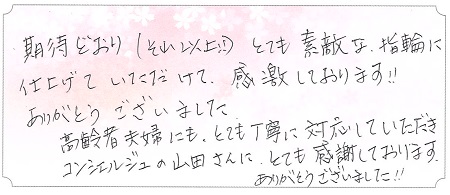 期待どおり(それ以上!!)とても素敵な、指輪に
仕上げていただけて、感激しております!!
ありがとうございました
高齢者夫婦にも、とても丁寧に対応していただき
コンシェルジュの山田さんに、とても感謝しております。
ありがとうございました!!